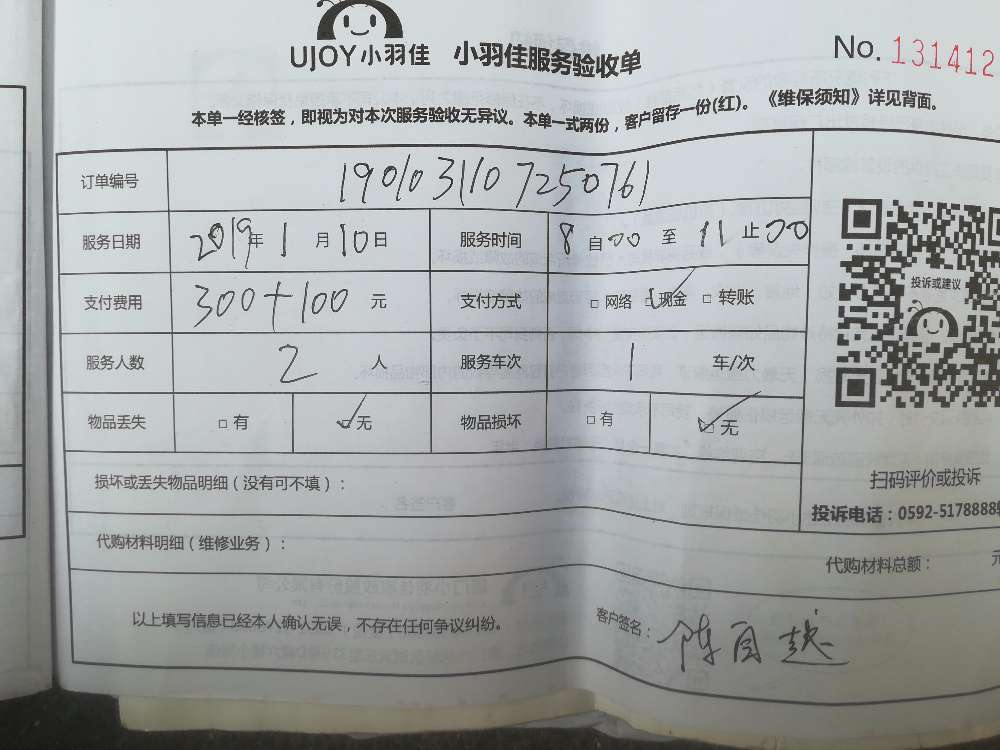 UJOY小羽佳 小羽佳服务验收单 No. 131412
本单一经核签，即视为对本次服务验收无异议。本单一式两份，客户留存一份(红)。《维保须知》详见背面。
订单编号 1901031107250761
服务日期 2019年1月10日 服务时间 8自00至11止00
支付费用 300+100元 支付方式 □网络 ☑现金 □转账
投诉或建议
服务人数 2人 服务车次 1车/次
物品丢失 □有 ☑无 物品损坏 □有 ☑无
损坏或丢失物品明细（没有可不填）：
扫码评价或投诉
投诉电话：0592-5178888转
代购材料明细（维修业务）：
代购材料总额： 元
以上填写信息已经本人确认无误，不存在任何争议纠纷。
客户签名：陈自越